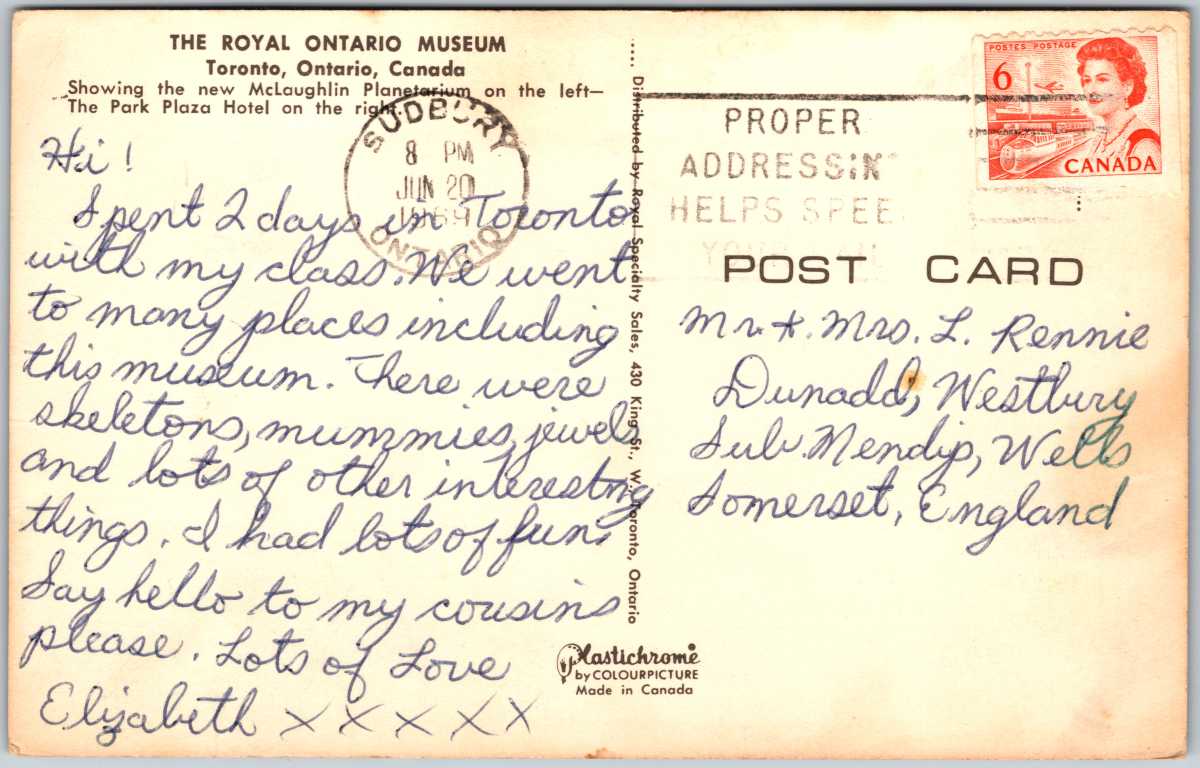 THE ROYAL ONTARIO MUSEUM
Toronto, Ontario, Canada
Showing the new McLaughlin Planetarium on the left—
The Park Plaza Hotel on the right.
SUDBURY
8 PM
JUN 20
1969
ONTARIO
PROPER
ADDRESSIN
HELPS SPEE
POSTES POSTAGE
6
CANADA
POST CARD
Hi!
Spent 2 days in Toronto
with my class. We went
to many places including
this museum. There were
skeletons, mummies, jewels
and lots of other interesting
things. I had lots of fun.
Say hello to my cousins
please. Lots of Love
Elizabeth X X X X X
Distributed by Royal Specialty Sales, 430 King St., W. Toronto, Ontario
Mr. & Mrs. L. Rennie
Dunadd, Westbury
Sub. Mendip, Wells
Somerset, England
Plastichrome
by COLOURPICTURE
Made in Canada